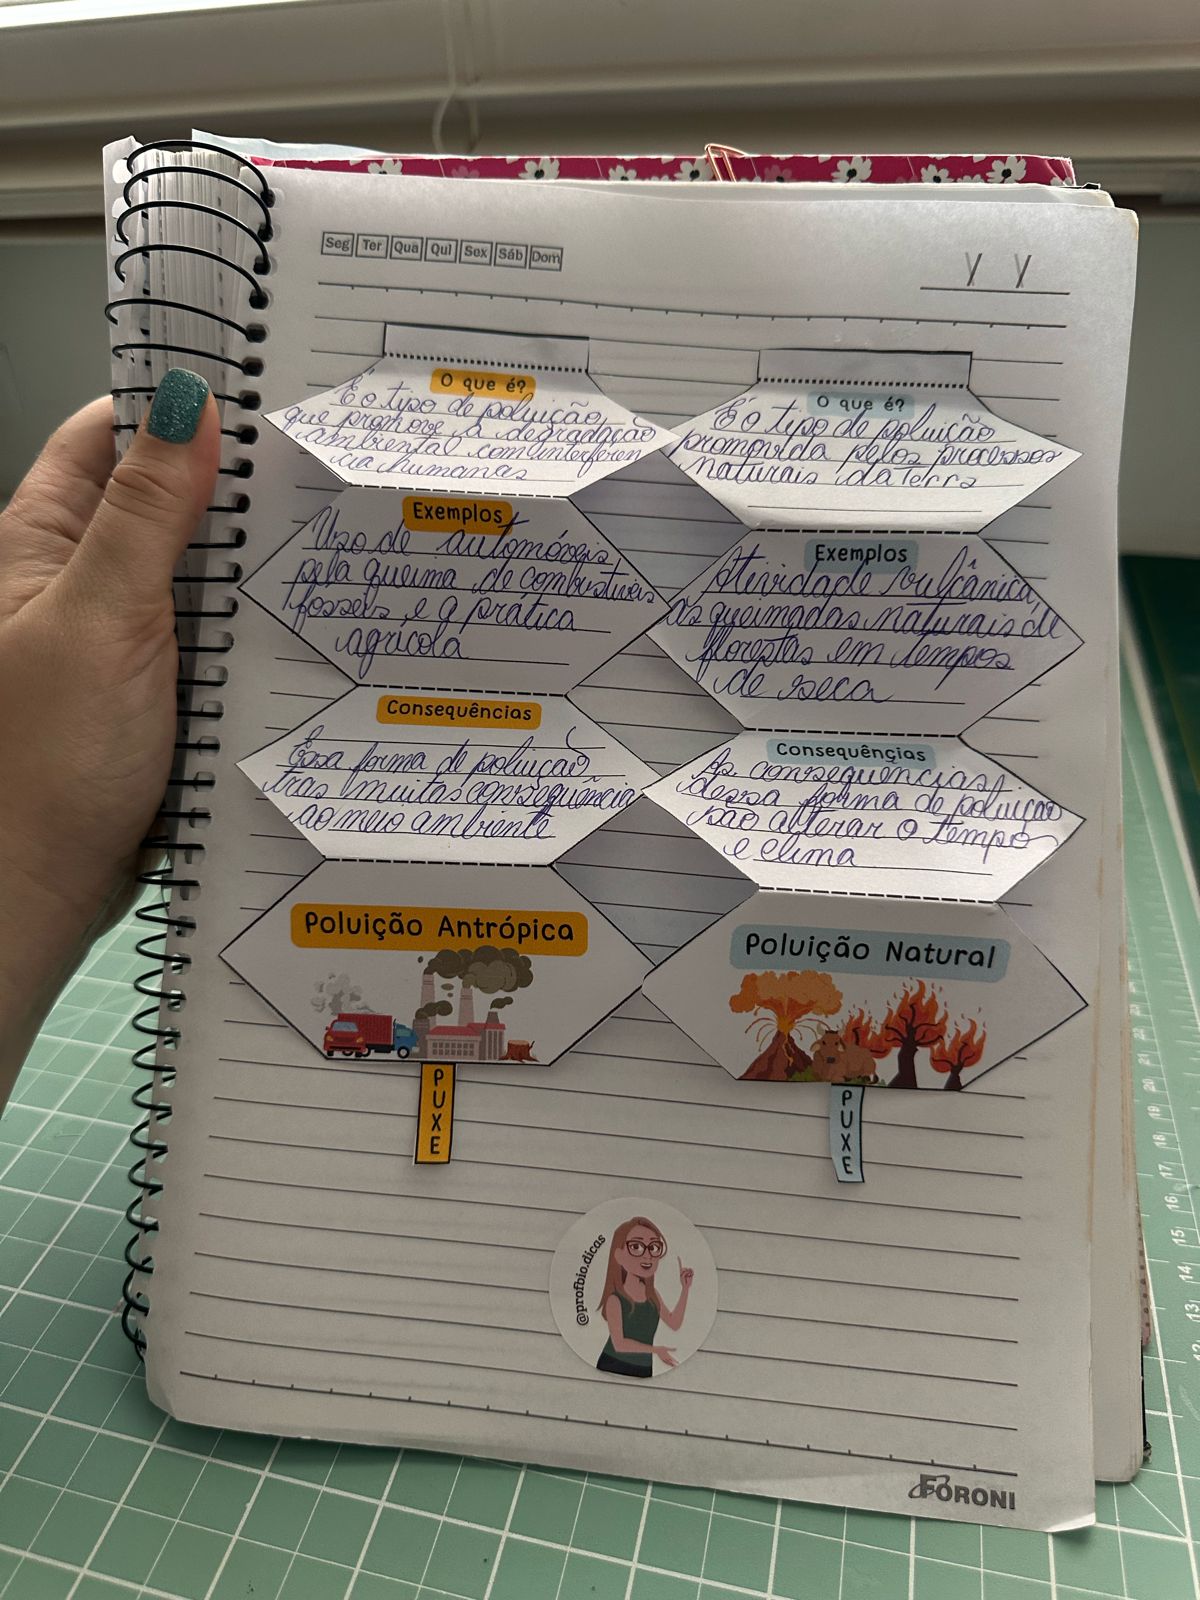 Seg Ter Qua Qui Sex Sáb Dom
O que é?
É o tipo de poluição
que promove a degradação
ambiental com interferen
cia humanas
Exemplos
Uso de automóveis,
pela queima de combustiveis
fosseis e a prática
agrícola
Consequências
Essa forma de poluição
tras muitas consequência
ao meio ambiente
Poluição Antrópica
PUXE
O que é?
É o tipo de poluição
promovida pelos processos
naturais da terra
Exemplos
Atividade vulcânica,
as queimadas naturais de
florestas em tempos
de seca
Consequências
As consequencias
dessa forma de poluição
são alterar o tempo
e clima
Poluição Natural
PUXE
@profbio.dicas
FORONI
12 13 14 15 16 17 18 19 20 21 22